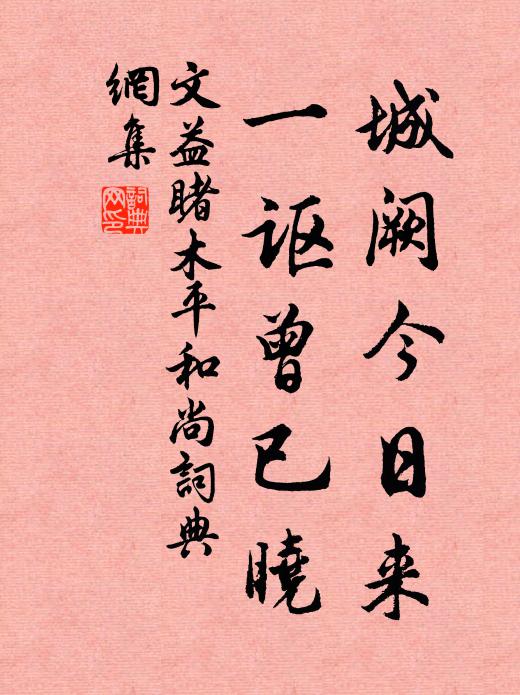 城阙今日来
一讴曾已曉
文益睹木平和尚詞典
網集
詞典
网印